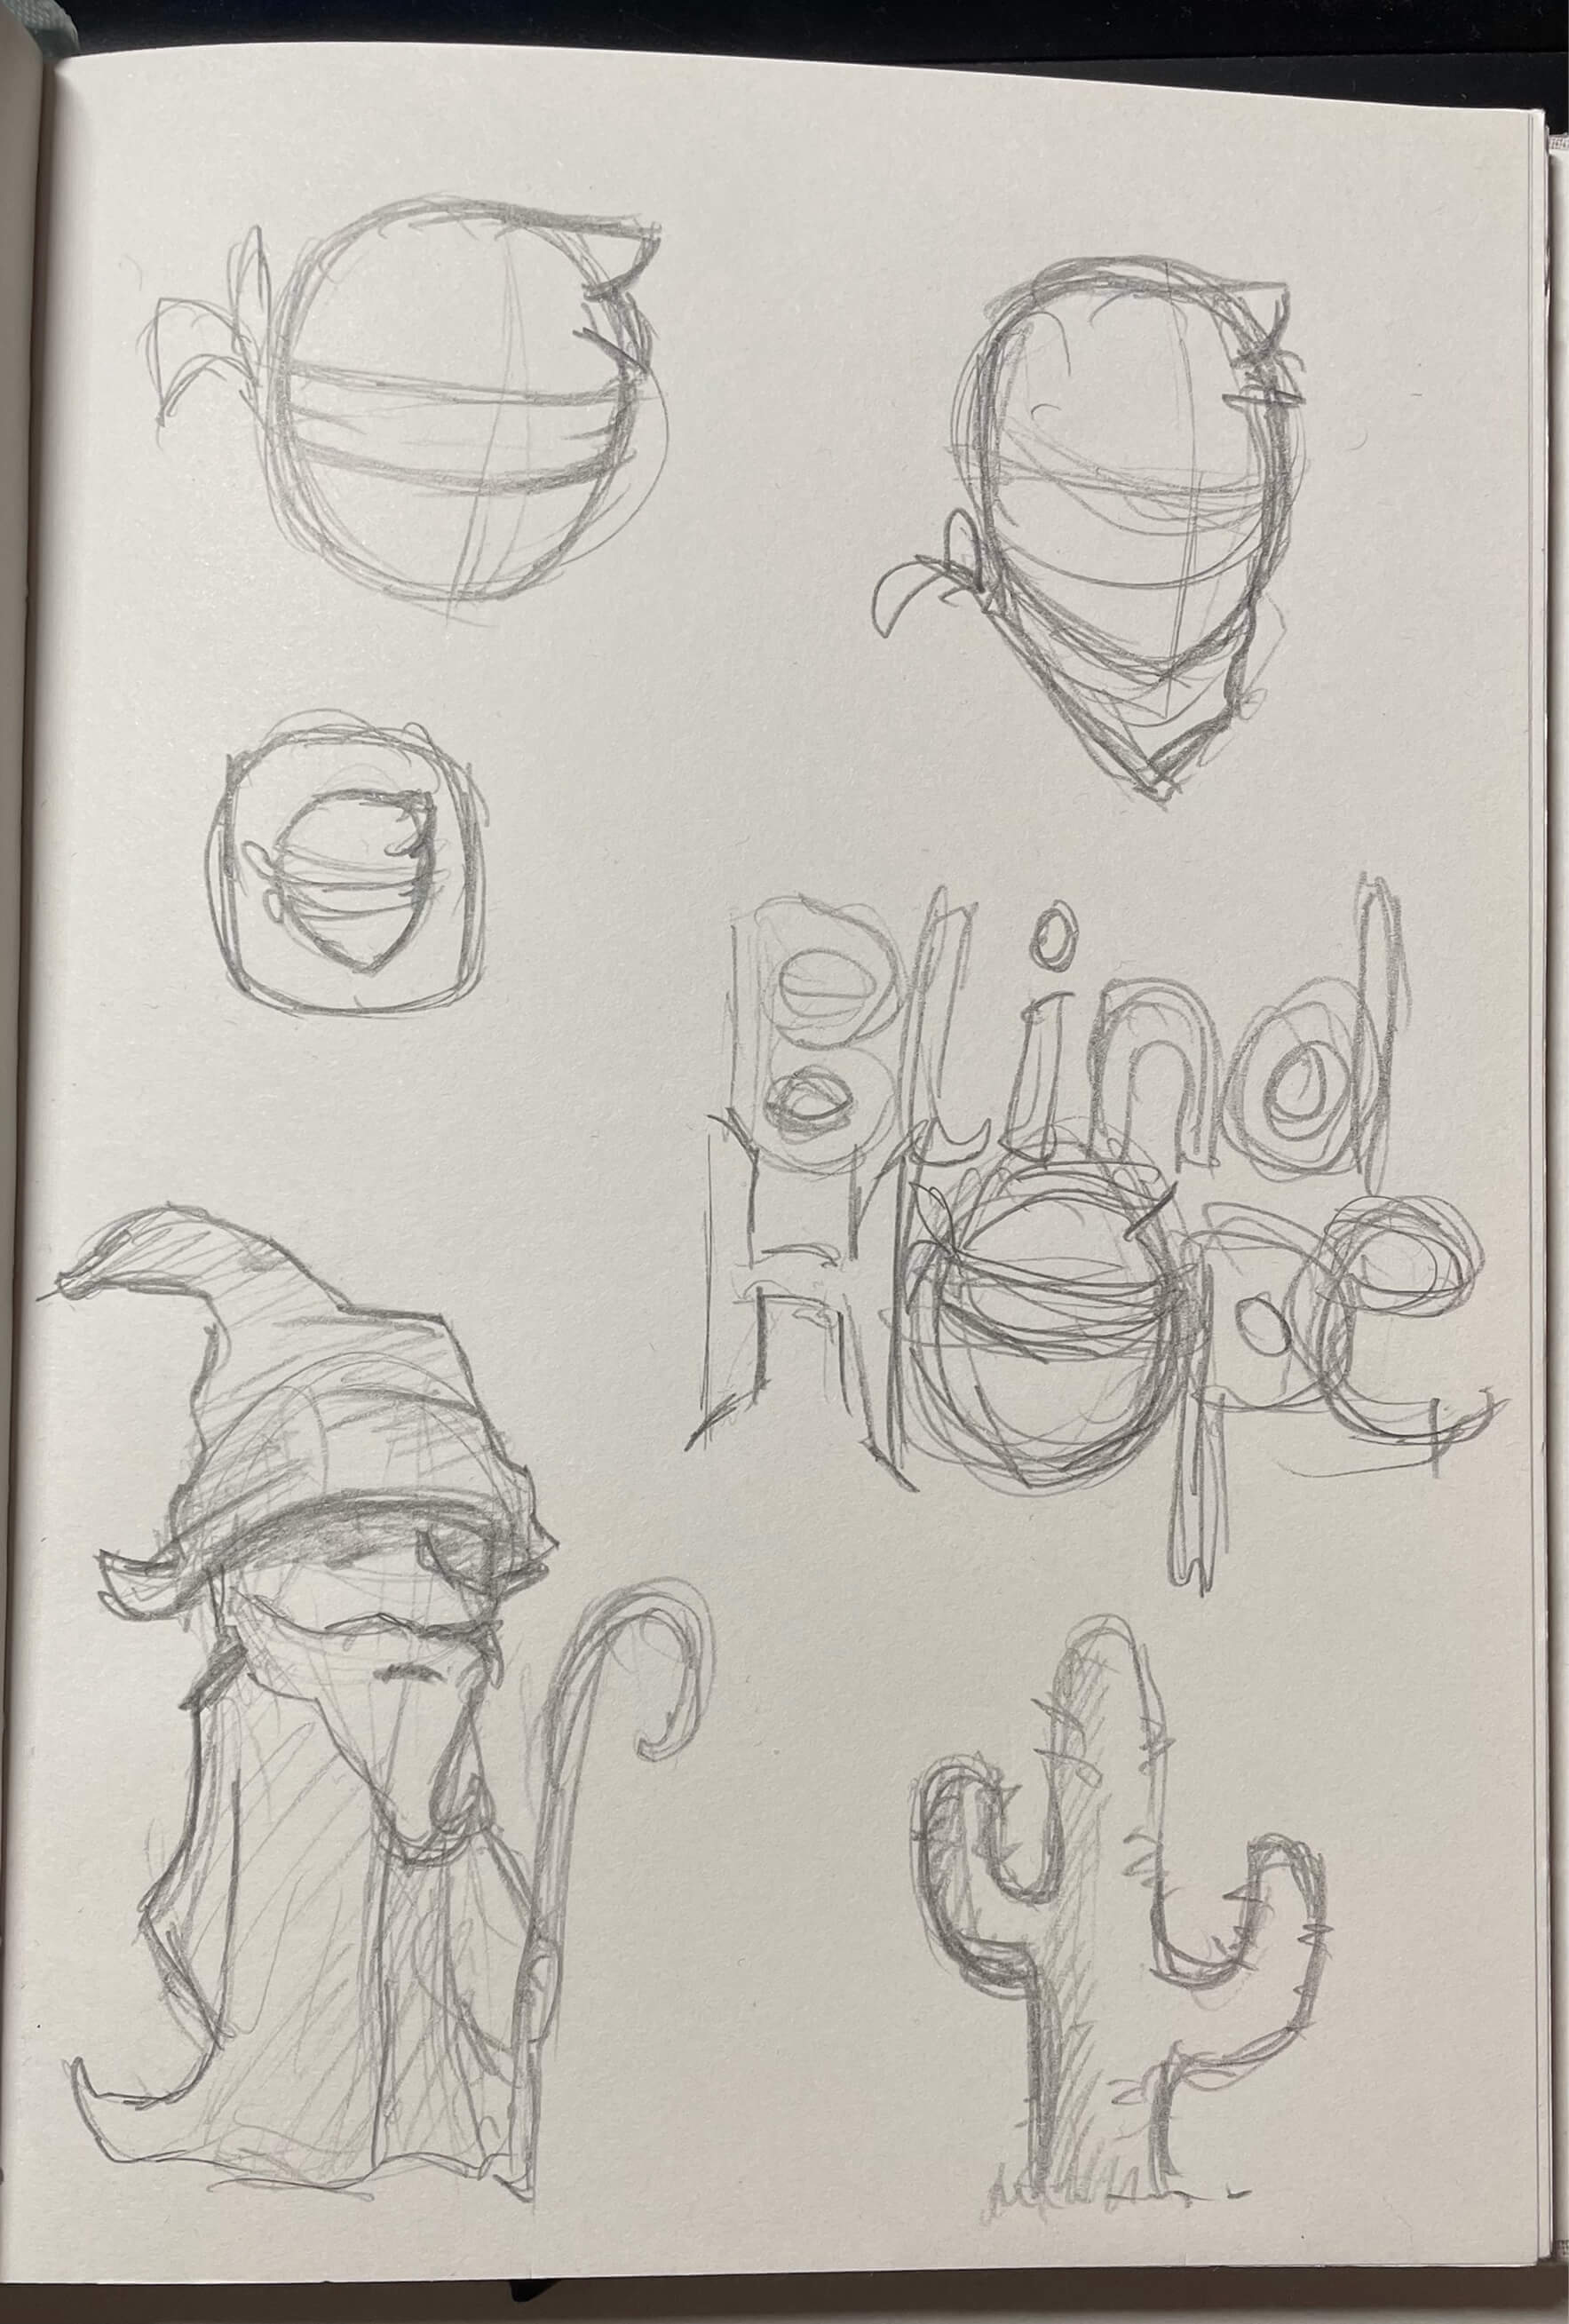 Blind
Hope